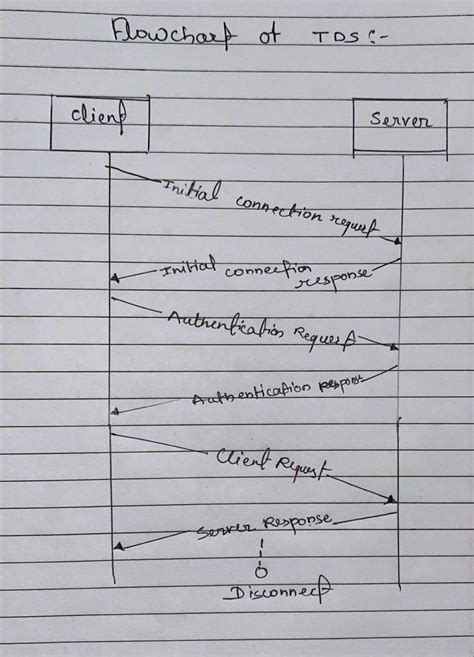 Flowchart of TDS :-
Client
Server
Initial connection request
Initial connection
response
Authentication Request
Authentication respons
Client Request
Server Response
Disconnect